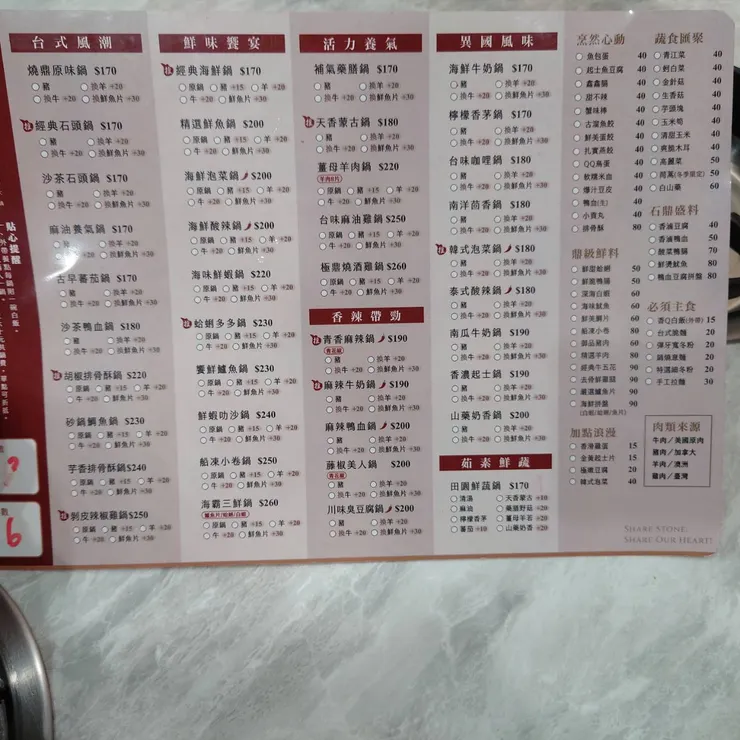 台式風潮
燒鼎原味鍋 $170
豬 換羊+20
換牛+20 換鮮魚片+30
經典石頭鍋 $170
豬 換羊+20
換牛+20 換鮮魚片+30
沙茶石頭鍋 $170
豬 換羊+20
換牛+20 換鮮魚片+30
麻油養氣鍋 $170
豬 換羊+20
換牛+20 換鮮魚片+30
古早蕃茄鍋 $170
豬 換羊+20
換牛+20 換鮮魚片+30
沙茶鴨血鍋 $180
豬 換羊+20
換牛+20 換鮮魚片+30
胡椒排骨酥鍋 $220
原鍋 豬+15 羊+20
牛+20 鮮魚片+30
砂鍋鯛魚鍋 $230
原鍋 豬+15 羊+20
牛+20 鮮魚片+30
芋香排骨酥鍋$240
原鍋 豬+15 羊+20
牛+20 鮮魚片+30
剝皮辣椒雞鍋$250
原鍋 豬+15 羊+20
牛+20 鮮魚片+30
鮮味饗宴
經典海鮮鍋 $170
原鍋 豬+15 羊+20
牛+20 鮮魚片+30
精選鮮魚鍋 $200
原鍋 豬+15 羊+20
牛+20 鮮魚片+30
海鮮泡菜鍋 $200
原鍋 豬+15 羊+20
牛+20 鮮魚片+30
海鮮酸辣鍋 $200
原鍋 豬+15 羊+20
牛+20 鮮魚片+30
海味鮮蝦鍋 $220
原鍋 豬+15 羊+20
牛+20 鮮魚片+30
蛤蜊多多鍋 $230
原鍋 豬+15 羊+20
牛+20 鮮魚片+30
饗鮮鱸魚鍋 $230
原鍋 豬+15 羊+20
牛+20 鮮魚片+30
鮮蝦叻沙鍋 $240
原鍋 豬+15 羊+20
牛+20 鮮魚片+30
船凍小卷鍋 $250
原鍋 豬+15 羊+20
牛+20 鮮魚片+30
海霸三鮮鍋 $260
原鍋 豬+15 羊+20
牛+20 鮮魚片+30
活力養氣
補氣藥膳鍋 $170
豬 換羊+20
換牛+20 換鮮魚片+30
天香蒙古鍋 $180
豬 換羊+20
換牛+20 換鮮魚片+30
薑母羊肉鍋 $220
原鍋 豬+15 羊+20
牛+20 鮮魚片+30
台味麻油雞鍋$250
原鍋 豬+15 羊+20
牛+20 鮮魚片+30
極鼎燒酒雞鍋 $260
原鍋 豬+15 羊+20
牛+20 鮮魚片+30
香辣帶勁
青香麻辣鍋 $190
豬 換羊+20
換牛+20 換鮮魚片+30
麻辣牛奶鍋 $190
豬 換羊+20
換牛+20 換鮮魚片+30
麻辣鴨血鍋 $200
豬 換羊+20
換牛+20 換鮮魚片+30
藤椒美人鍋 $200
豬 換羊+20
換牛+20 換鮮魚片+30
川味臭豆腐鍋 $200
豬 換羊+20
換牛+20 換鮮魚片+30
異國風味
海鮮牛奶鍋 $170
豬 換羊+20
換牛+20 換鮮魚片+30
檸檬香茅鍋 $170
豬 換羊+20
換牛+20 換鮮魚片+30
台味咖哩鍋 $180
豬 換羊+20
換牛+20 換鮮魚片+30
南洋茴香鍋 $180
豬 換羊+20
換牛+20 換鮮魚片+30
韓式泡菜鍋 $180
豬 換羊+20
換牛+20 換鮮魚片+30
泰式酸辣鍋 $180
豬 換羊+20
換牛+20 換鮮魚片+30
南瓜牛奶鍋 $190
豬 換羊+20
換牛+20 換鮮魚片+30
香濃起士鍋 $190
豬 換羊+20
換牛+20 換鮮魚片+30
山藥奶香鍋 $200
豬 換羊+20
換牛+20 換鮮魚片+30
茹素鮮蔬
田園鮮蔬鍋 $170
清湯 天香蒙古+10
麻油 藥膳野菇+20
檸檬香茅 薑母平若+20
蕃茄+10 山藥奶香+20
烹然心動
魚包蛋 40
起士魚豆腐 40
鑫鑫腸 40
甜不辣 40
蟹味棒 40
古溜魚餃 40
鮮美蛋餃 40
扎實燕餃 40
QQ鳥蛋 40
軟糯米血 40
爆汁豆皮 40
鴨血(生) 40
小貢丸 40
排骨酥 80
鼎級鮮料
鮮甜蛤蜊 50
鮮脆鴨腸 50
深海白蝦 60
海味魷魚 60
鮮美鯛片 60
船凍小卷 80
御品豬肉 60
精選羊肉 80
經典牛五花 90
去骨鮮雞腿 90
嚴選鱸魚片 90
海鮮拼盤 90
(白蝦/蛤蜊/魚片)
加點浪漫
香港雞蛋 15
金黃起士片 15
極嫩豆腐 20
韓式泡菜 20
蔬食匯聚
青江菜 40
刺白菜 40
金針菇 40
生香菇 40
芋頭塊 40
玉米筍 40
清甜玉米 40
爽脆木耳 40
高麗菜 50
茼萵(冬季限定) 50
白山藥 60
石鼎盛料
香滷豆腐 40
香滷鴨血 50
酸菜鴨腸 70
鮮燙魷魚 80
鴨血豆腐拼盤 80
必須主食
香Q白飯(外帶) 15
台式炊麵 20
彈牙寬冬粉 20
鍋燒意麵 20
特選細冬粉 20
手工拉麵 30
肉類來源
牛肉/美國原肉
豬肉/加拿大
羊肉/澳洲
雞肉/臺灣
SHARE STONE,
SHARE OUR HEART!
貼心提醒